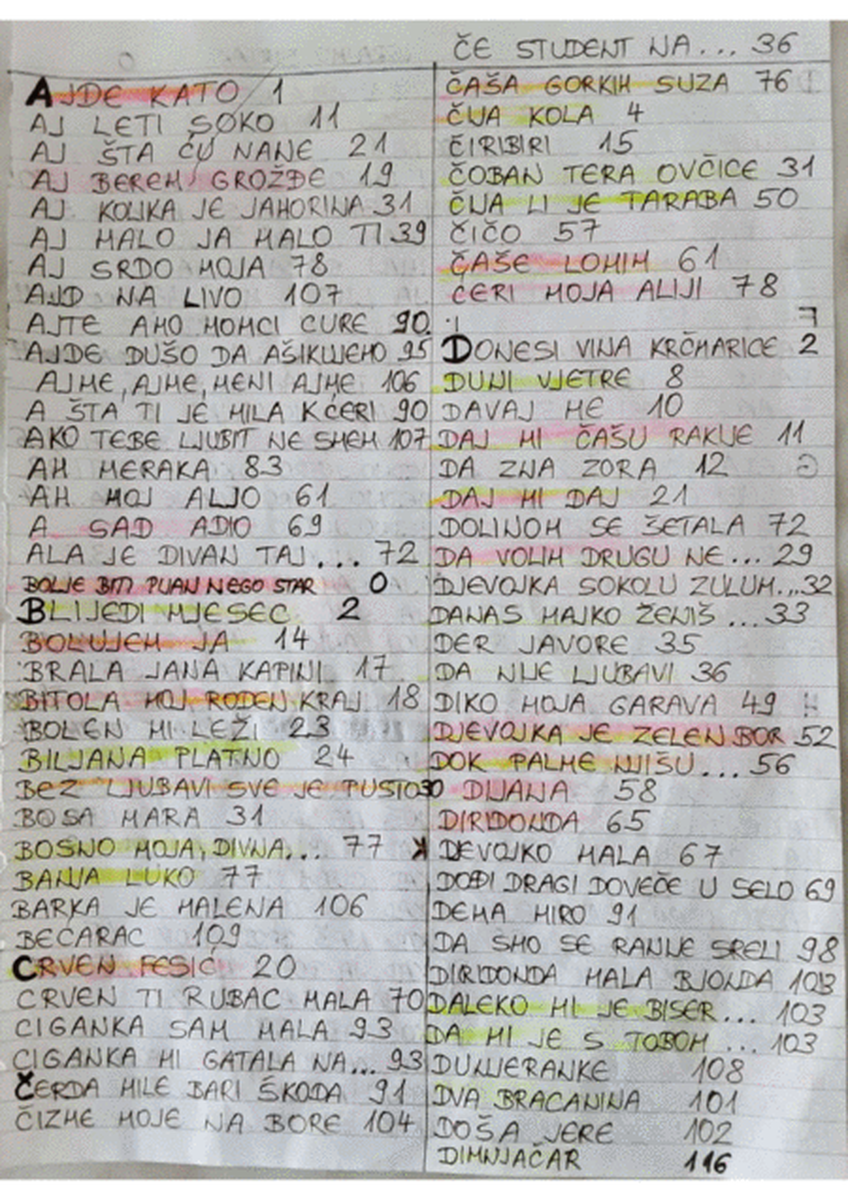 AJDE KATO 1
AJ LETI SOKO 11
AJ ŠTA ĆU NANE 21
AJ BEREM GROŽĐE 19
AJ KOLIKA JE JAHORINA 31
AJ MALO JA MALO TI 39
AJ SRDO MOJA 78
AJD NA LIVO 107
AJTE AMO MOMCI CURE 90
AJDE DUŠO DA AŠIKUJEMO 95
AJME, AJME, MENI AJME 106
A ŠTA TI JE MILA KĆERI 90
AKO TEBE LJUBIT NE SMEM 107
AH MERAKA 83
AH MOJ ALJO 61
A SAD ADIO 69
ALA JE DIVAN TAJ... 72
BOLJE BITI PIJAN NEGO STAR 0
BLIJEDI MJESEC 2
BOLUJEM JA 14
BRALA JANA KAPINI 17
BITOLA MOJ RODEN KRAJ 18
BOLEN MI LEŽI 23
BILJANA PLATNO 24
BEZ LJUBAVI SVE JE PUSTO 30
BOSA MARA 31
BOSNO MOJA, DIVNA... 77
BANJA LUKO 77
BARKA JE MALENA 106
BEĆARAC 109
CRVEN FESIĆ 20
CRVEN TI RUBAC MALA 70
CIGANKA SAM MALA 93
CIGANKA MI GATALA NA... 93
ČERDA MILE BARI ŠKODA 91
ČIZME MOJE NA BORE 104
ČE STUDENT NA... 36
ČAŠA GORKIH SUZA 76
ČIJA KOLA 4
ČIRIBIRI 15
ČOBAN TERA OVČICE 31
ČIJA LI JE TARABA 50
ČIČO 57
ČAŠE LOMIM 61
ĆERI MOJA ALIJI 78
DONESI VINA KRČMARICE 2
DUNI VJETRE 8
DAVAJ ME 10
DAJ MI ČAŠU RAKIJE 11
DA ZNA ZORA 12
DAJ MI DAJ 21
DOLINOM SE ŠETALA 72
DA VOLIM DRUGU NE... 29
DJEVOJKA SOKOLU ZULUM...32
DANAS MAJKO ŽENIŠ ...33
DER JAVORE 35
DA NIJE LJUBAVI 36
DIKO MOJA GARAVA 49
DJEVOJKA JE ZELEN BOR 52
DOK PALME NJIŠU... 56
DIJANA 58
DIRIDONDA 65
DEVOJKO MALA 67
DOĐI DRAGI DOVEČE U SELO 69
DEMA MIRO 91
DA SMO SE RANIJE SRELI 98
DIRIDONDA MALA BJONDA 103
DALEKO MI JE BISER... 103
DA MI JE S TOBOM ... 103
DUNJERANKE 108
DVA BRACANINA 101
DOŠA JERE 102
DIMNJAČAR 116